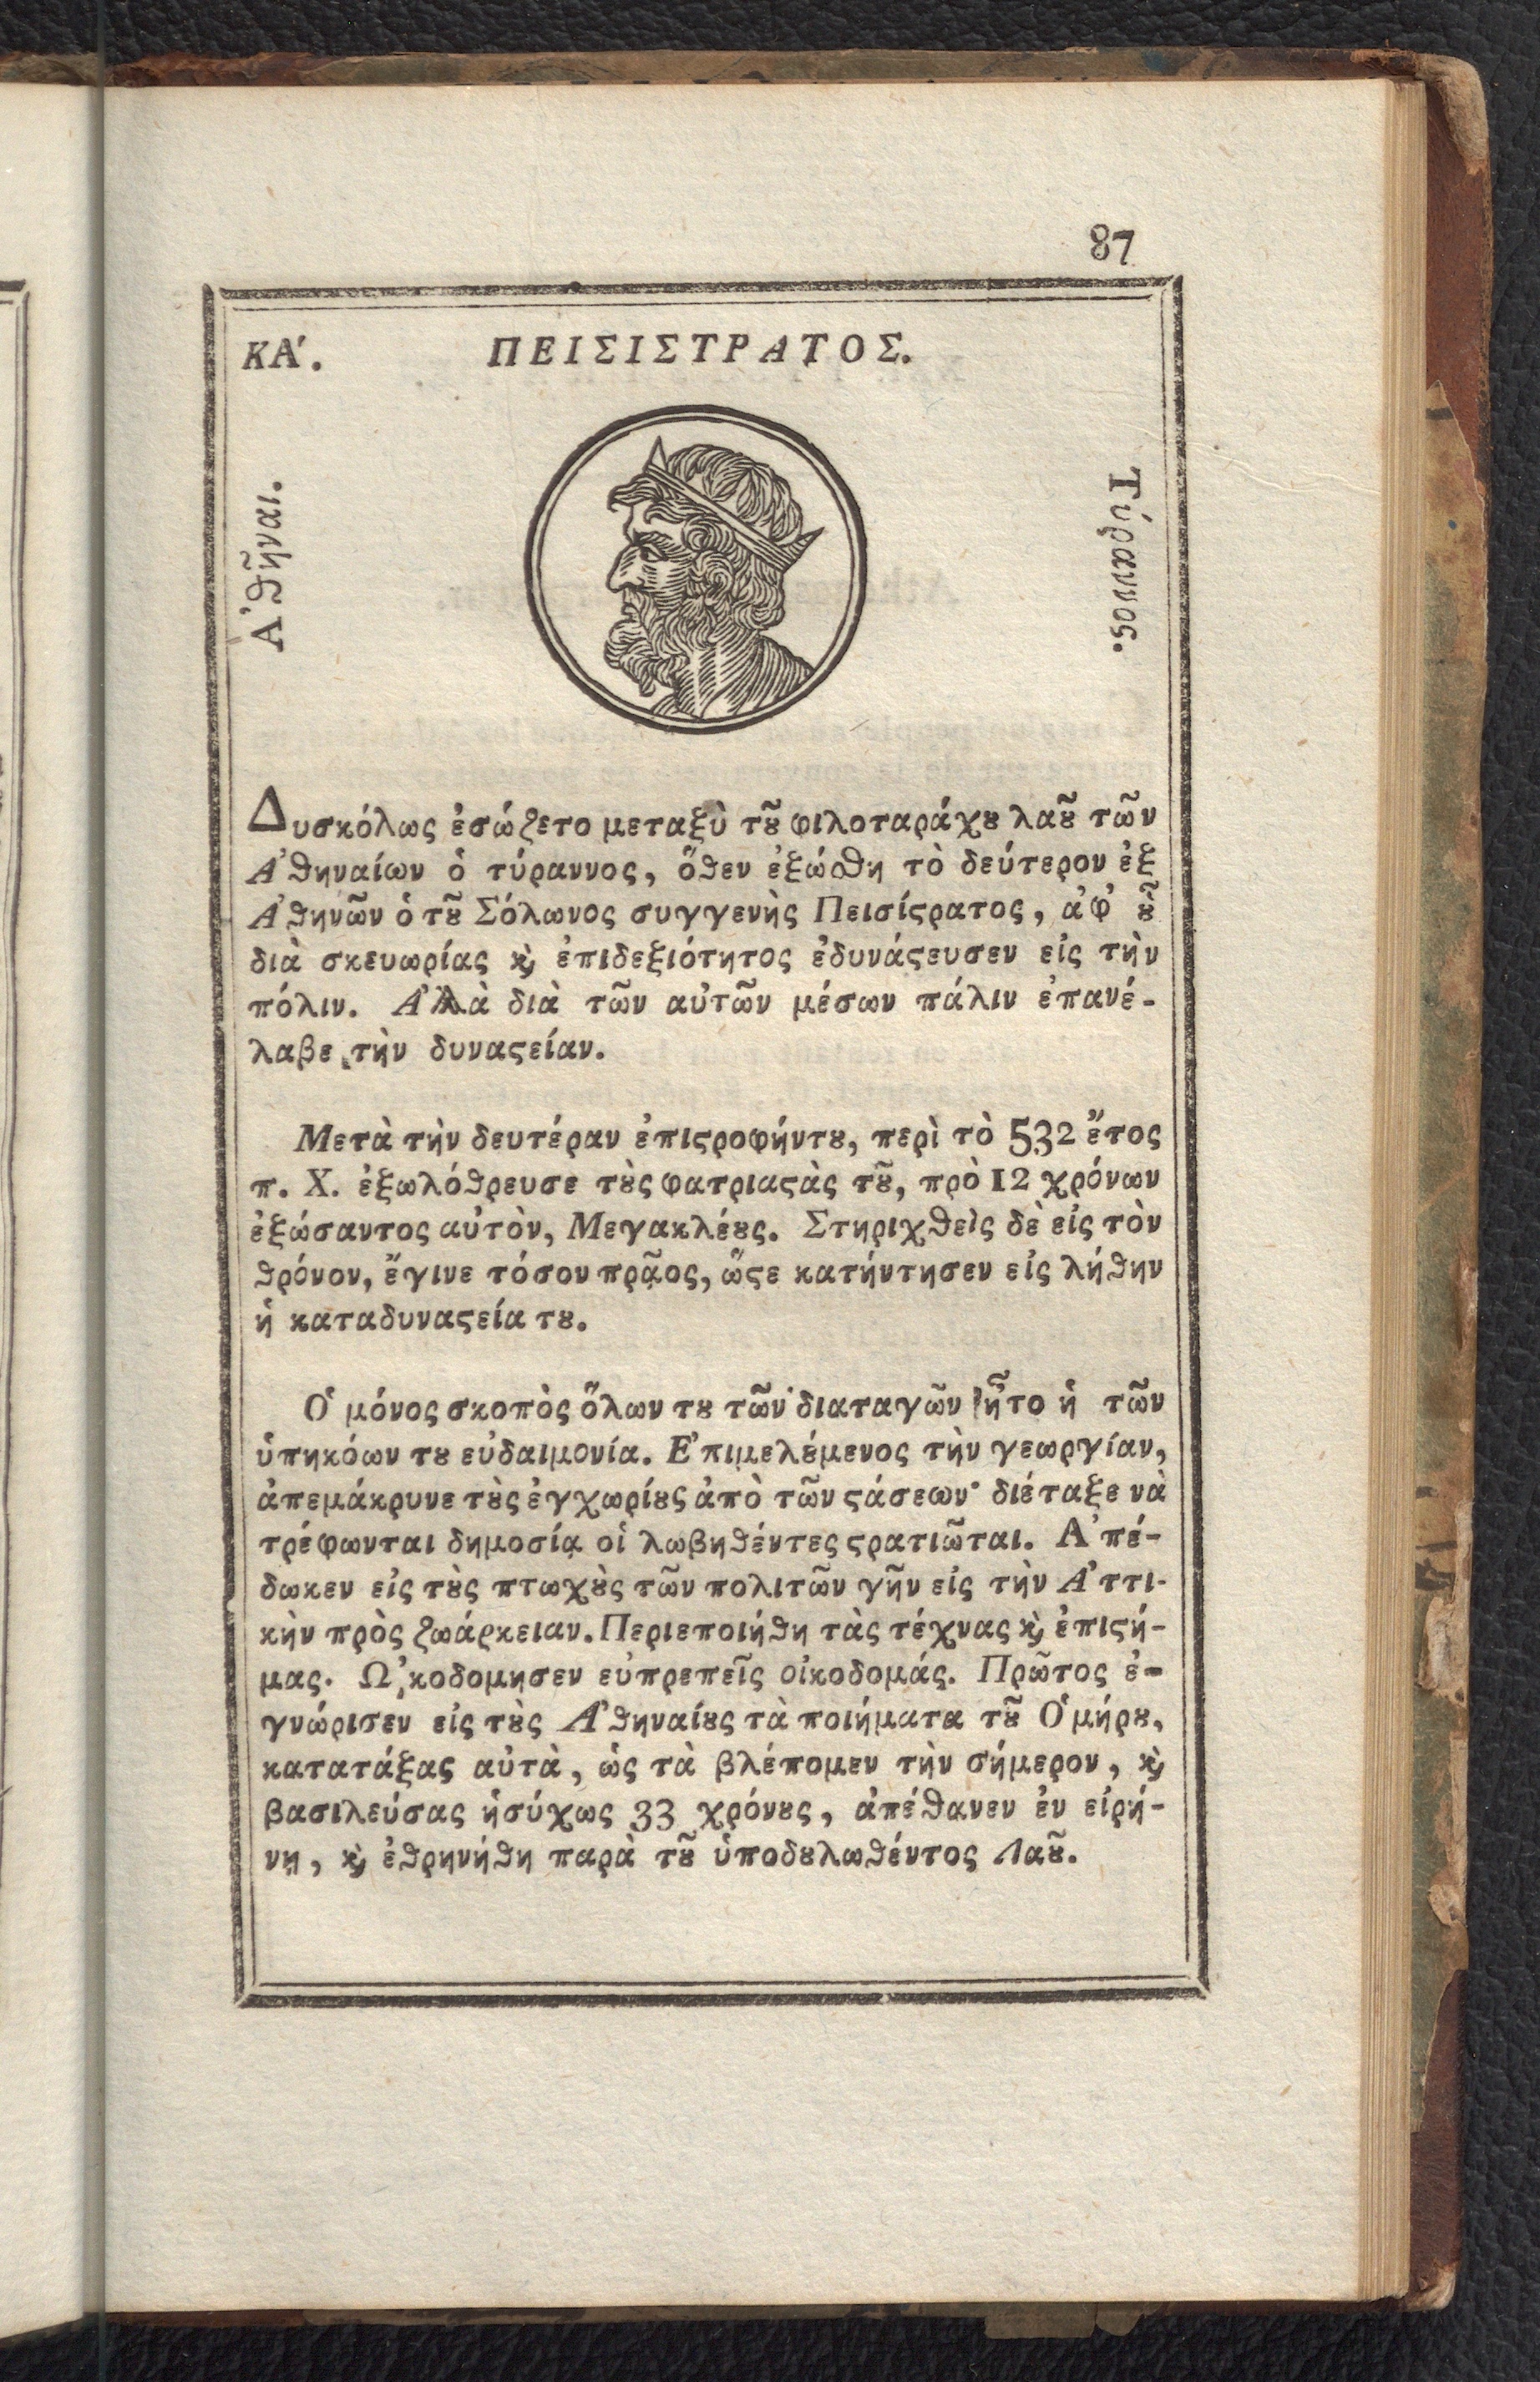 87
ΚΑ΄. ΠΕΙΣΙΣΤΡΑΤΟΣ.
Ἀθῆναι.
Τύραννος.
Δυσκόλως ἐσώζετο μεταξὺ τȣ͂ φιλοταράχȣ λαȣ͂ τῶν
Ἀθηναίων ὁ τύραννος, ὅθεν ἐξώσθη τὸ δεύτερον ἐξ
Ἀθηνῶν ὁ τȣ͂ Σόλωνος συγγενὴς Πεισίϛρατος, ἀφ' ȣ͗͂
διὰ σκευωρίας ϗ̀ ἐπιδεξιότητος ἐδυνάϛευσεν εἰς τὴν
πόλιν. Ἀλλὰ διὰ τῶν αὐτῶν μέσων πάλιν ἐπανέ-
λαβε τὴν δυναϛείαν.
Μετὰ τὴν δευτέραν ἐπιϛροφήντȣ, περὶ τὸ 532 ἔτος
π. Χ. ἐξωλόθρευσε τȣ̀ς φατριαϛὰς τȣ͂, πρὸ 12 χρόνων
ἐξώσαντος αὐτὸν, Μεγακλέȣς. Στηριχθεὶς δὲ εἰς τὸν
θρόνον, ἔγινε τόσον πρᾷος, ὥϛε κατήντησεν εἰς λήθην
ἡ καταδυναϛεία τȣ.
Ὁ μόνος σκοπὸς ὅλων τȣ τῶν διαταγῶν ἦτο ἡ τῶν
ὑπηκόων τȣ εὐδαιμονία. Ἐπιμελȣ́μενος τὴν γεωργίαν,
ἀπεμάκρυνε τȣ̀ς ἐγχωρίȣς ἀπὸ τῶν ϛάσεων· διέταξε νὰ
τρέφωνται δημοσίᾳ οἱ λωβηθέντες ϛρατιῶται. Ἀπέ-
δωκεν εἰς τȣ̀ς πτωχȣ̀ς τῶν πολιτῶν γῆν εἰς τὴν Ἀττι-
κὴν πρὸς ζωάρκειαν. Περιεποιήθη τὰς τέχνας ϗ̀ ἐπιϛή-
μας. ᾨκοδομησεν εὐπρεπεῖς οἰκοδομάς. Πρῶτος ἐ-
γνώρισεν εἰς τȣ̀ς Ἀθηναίȣς τὰ ποιήματα τȣ͂ Ὁμήρȣ,
κατατάξας αὐτὰ, ὡς τὰ βλέπομεν τὴν σήμερον, ϗ̀
βασιλεύσας ἡσύχως 33 χρόνȣς, ἀπέθανεν ἐν εἰρή-
νῃ, ϗ̀ ἐθρηνήθη παρὰ τȣ͂ ὑποδȣλωθέντος Λαȣ͂.